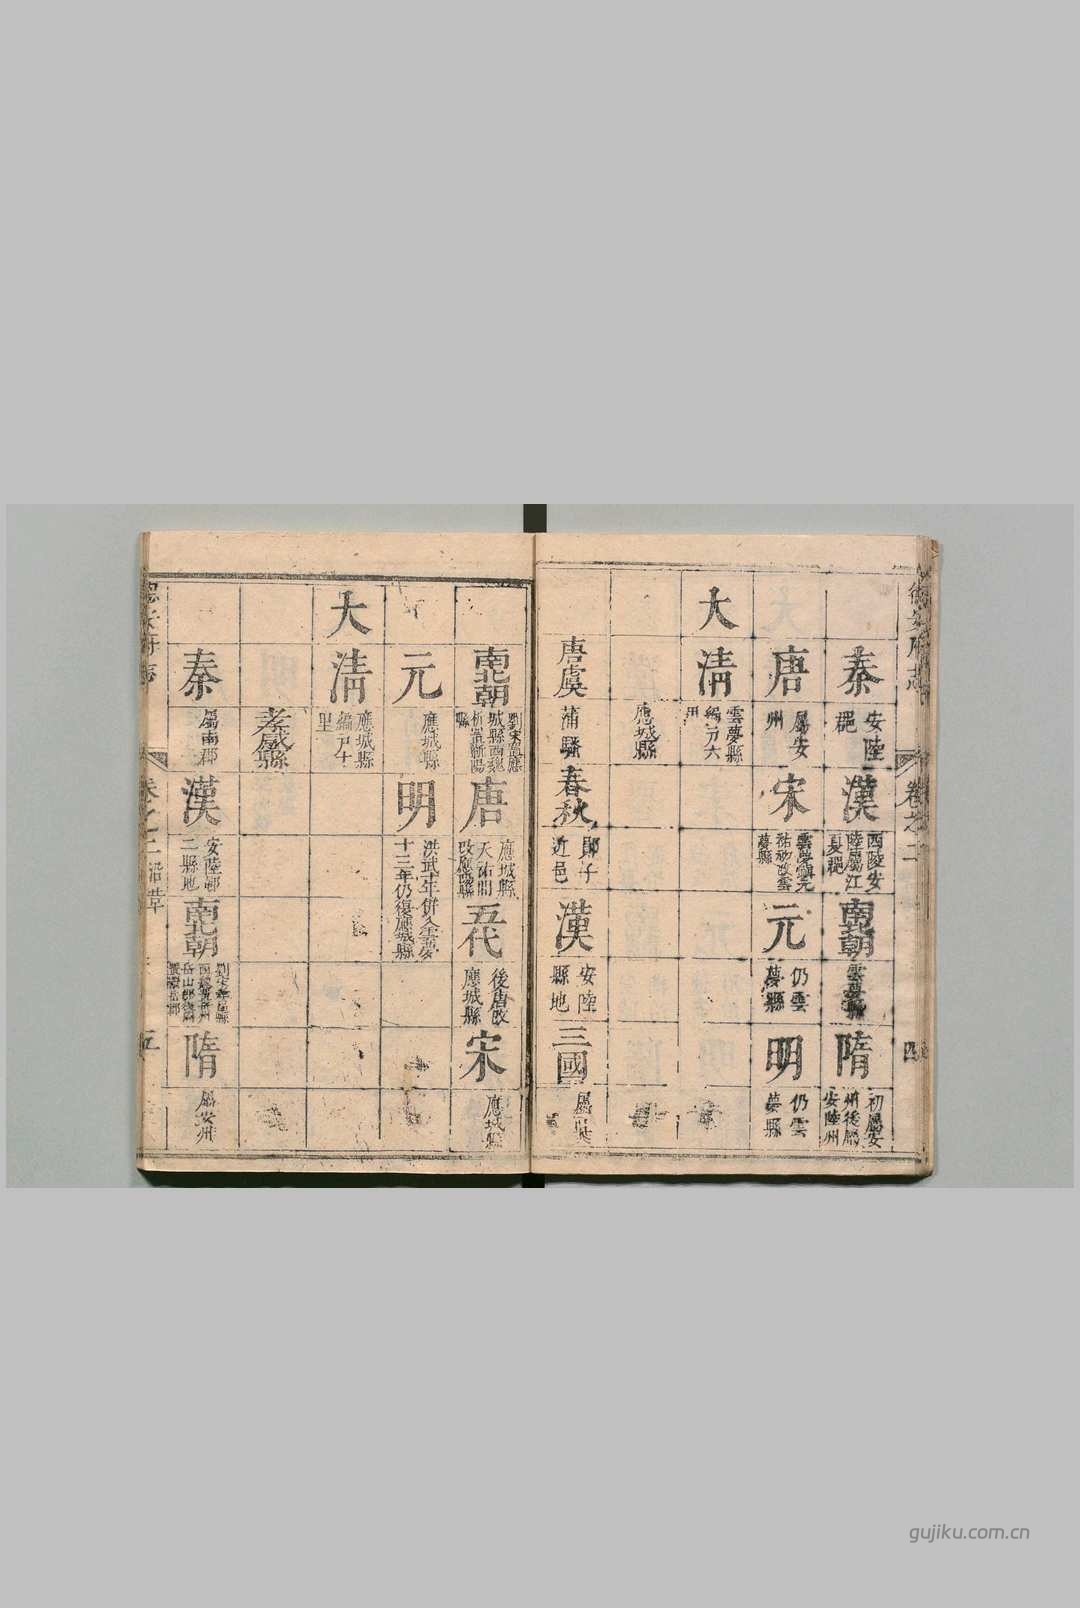 德安府志
卷之二
四
秦
安陸
郡
漢
西陵安
陸屬江
夏郡
南北朝
雲夢縣
隋
初屬安
州後屬
安陸州
唐
屬安
州
宋
雲夢鎮元
祐初改雲
夢縣
元
仍雲
夢縣
明
仍雲
夢縣
大清
雲夢縣
編戶六
里
應城縣
唐虞
蒲騷
春秋
鄖子
近邑
漢
安陸
縣地
三國
屬吳
南北朝
劉宋置應
城縣西魏
析置浮陽
縣
唐
應城縣
天祐間
改應陽縣
五代
後唐改
應城縣
宋
應城縣
元
應城縣
明
洪武十年併入雲夢
十三年仍復應城縣
大清
應城縣
編戶十
里
孝感縣
秦
屬南郡
漢
安陸鄳
二縣地
南北朝
劉宋孝昌縣
岳山郡
隋
屬安州
德安府志
卷之二 沿革
五
gujiku.com.cn